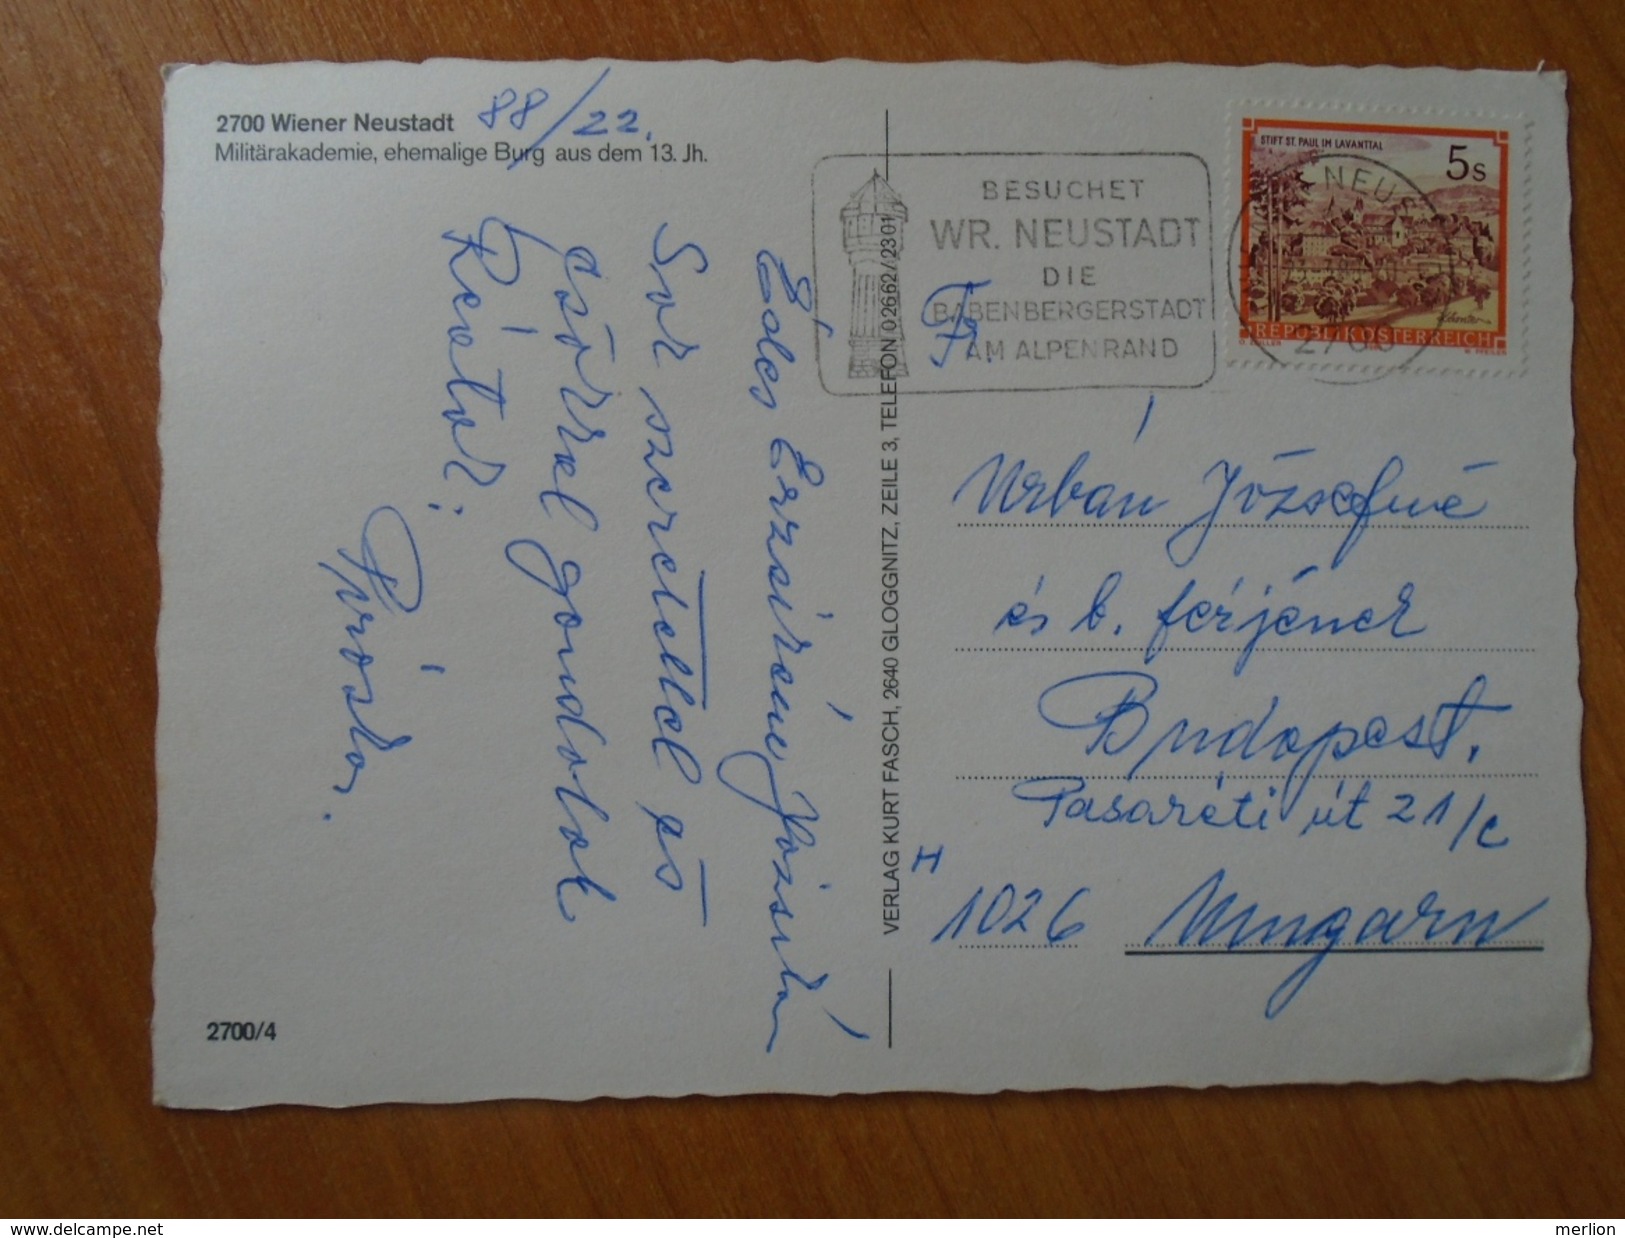 2700 Wiener Neustadt
Militärakademie, ehemalige Burg aus dem 13. Jh.
88/22.
Édes Erzsirémy, Józsitán
Sok szeretettel és
csőrrel gondolok
Reátok:
Piroska.
2700/4
VERLAG KURT FASCH, 2640 GLOGGNITZ, ZEILE 3, TELEFON 02662/2301
BESUCHET
WR. NEUSTADT
DIE
BABENBERGERSTADT
AM ALPENRAND
STIFT ST. PAUL IM LAVANTTAL
5s
REPUBLIK ÖSTERREICH
2700
Fr.
Urbán Józsefné
és k. férjének
Budapest.
Pasaréti út 21/c
H
1026 Ungarn
merlion